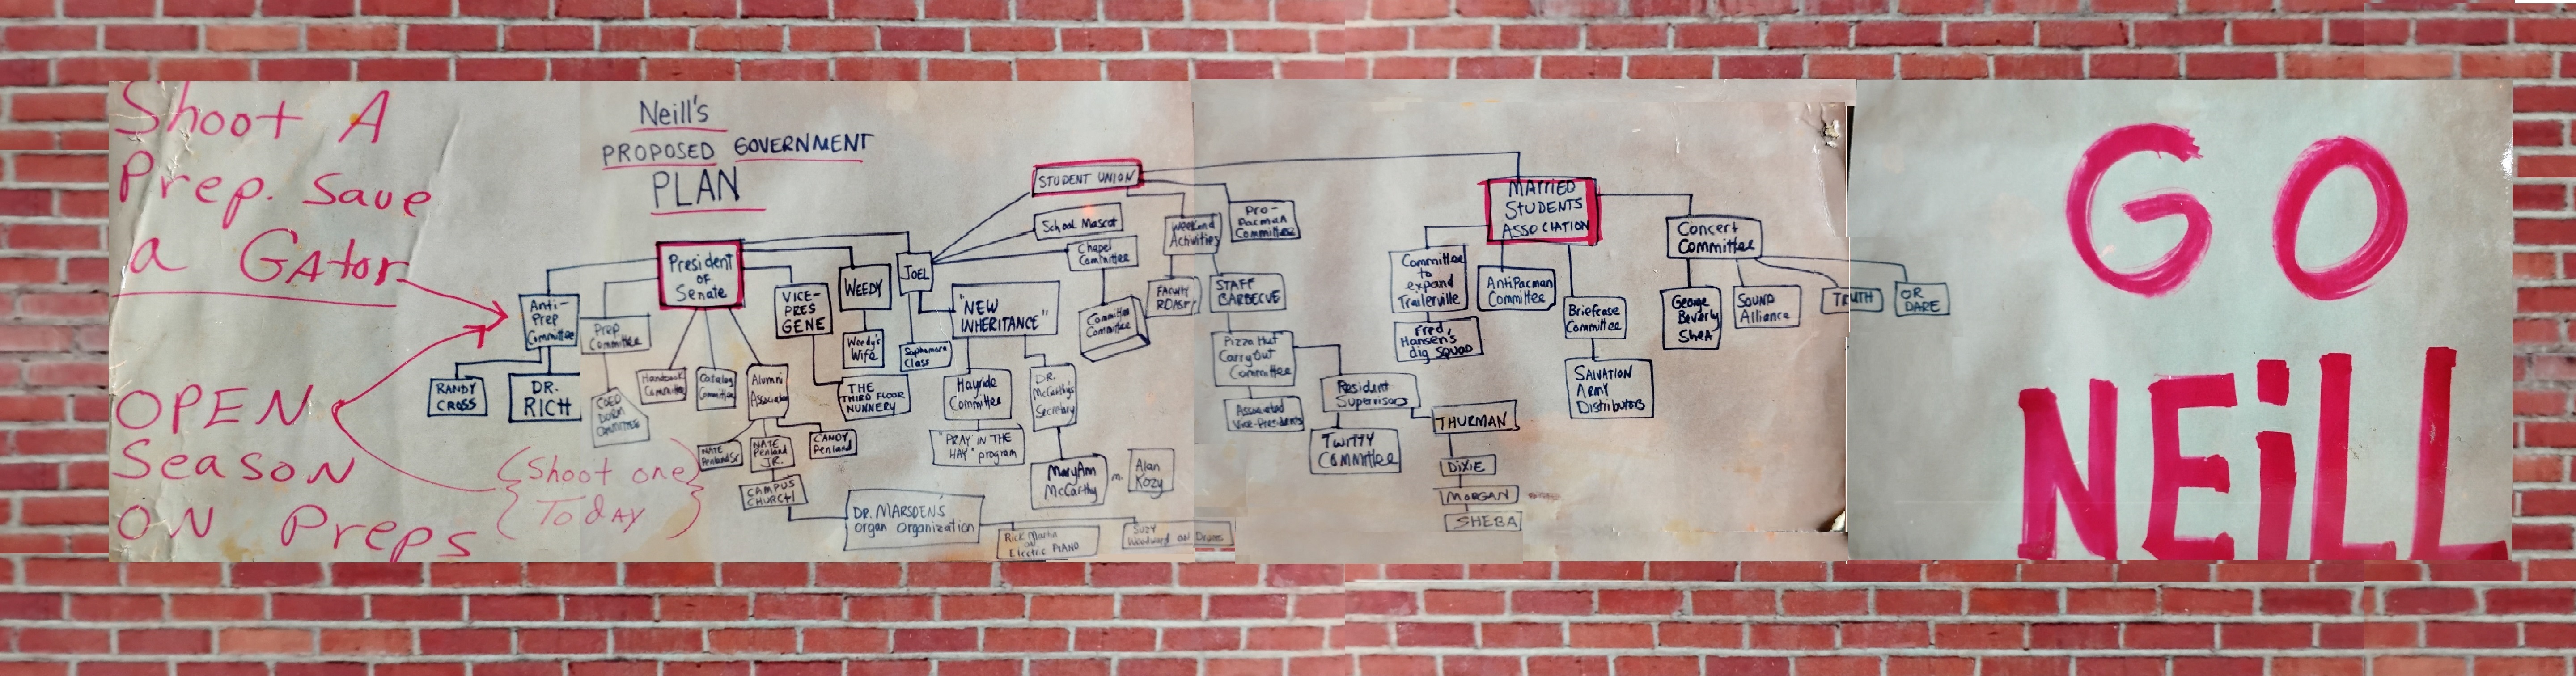 Shoot A
Prep. Save
a GAtor
OPEN
Season
ON Preps
(Shoot one
Today)
Neill's
PROPOSED GOVERNMENT
PLAN
President
OF
Senate
Anti-
Prep
Committee
RANDY
CROSS
DR.
RICH
Prep
Committee
COED
DORM
COMMITTEE
Handbook
Committee
Catalog
Committee
Alumni
Association
NATE
Penland Sr.
NATE
Penland
JR.
CANDY
Penland
CAMPUS
CHURCH
DR. MARSDEN'S
organ organization
Rick Martin
on
Electric PIANO
Suzy
Woodward ON Drums
VICE-
PRES
GENE
THE
THIRD FLOOR
NUNNERY
WEEDY
Weedy's
Wife
JOEL
Sophomore
Class
"NEW
INHERITANCE"
Hayride
Committee
"PRAY IN THE
HAY" program
DR.
McCarthy's
Secretary
MaryAnn
McCarthy
m.
Alan
Kozy
STUDENT UNION
School Mascot
Chapel
Committee
Committee
Committee
Weekend
Activities
Pro-
Pacman
Committee
FACULTY
ROAST
STAFF
BARBECUE
Pizza Hut
Carryout
Committee
Associated
Vice-Presidents
Resident
Supervisors
Twitty
Committee
THURMAN
DIXIE
MORGAN
SHEBA
MARRIED
STUDENTS
ASSOCIATION
Committee
to
expand
Trailerville
Fred
Hansen's
dig SQUAD
AntiPacman
Committee
Briefcase
Committee
SALVATION
ARMY
Distributors
Concert
Committee
George
Beverly
SheA
SOUND
Alliance
TRUTH
OR
DARE
GO
NEiLL